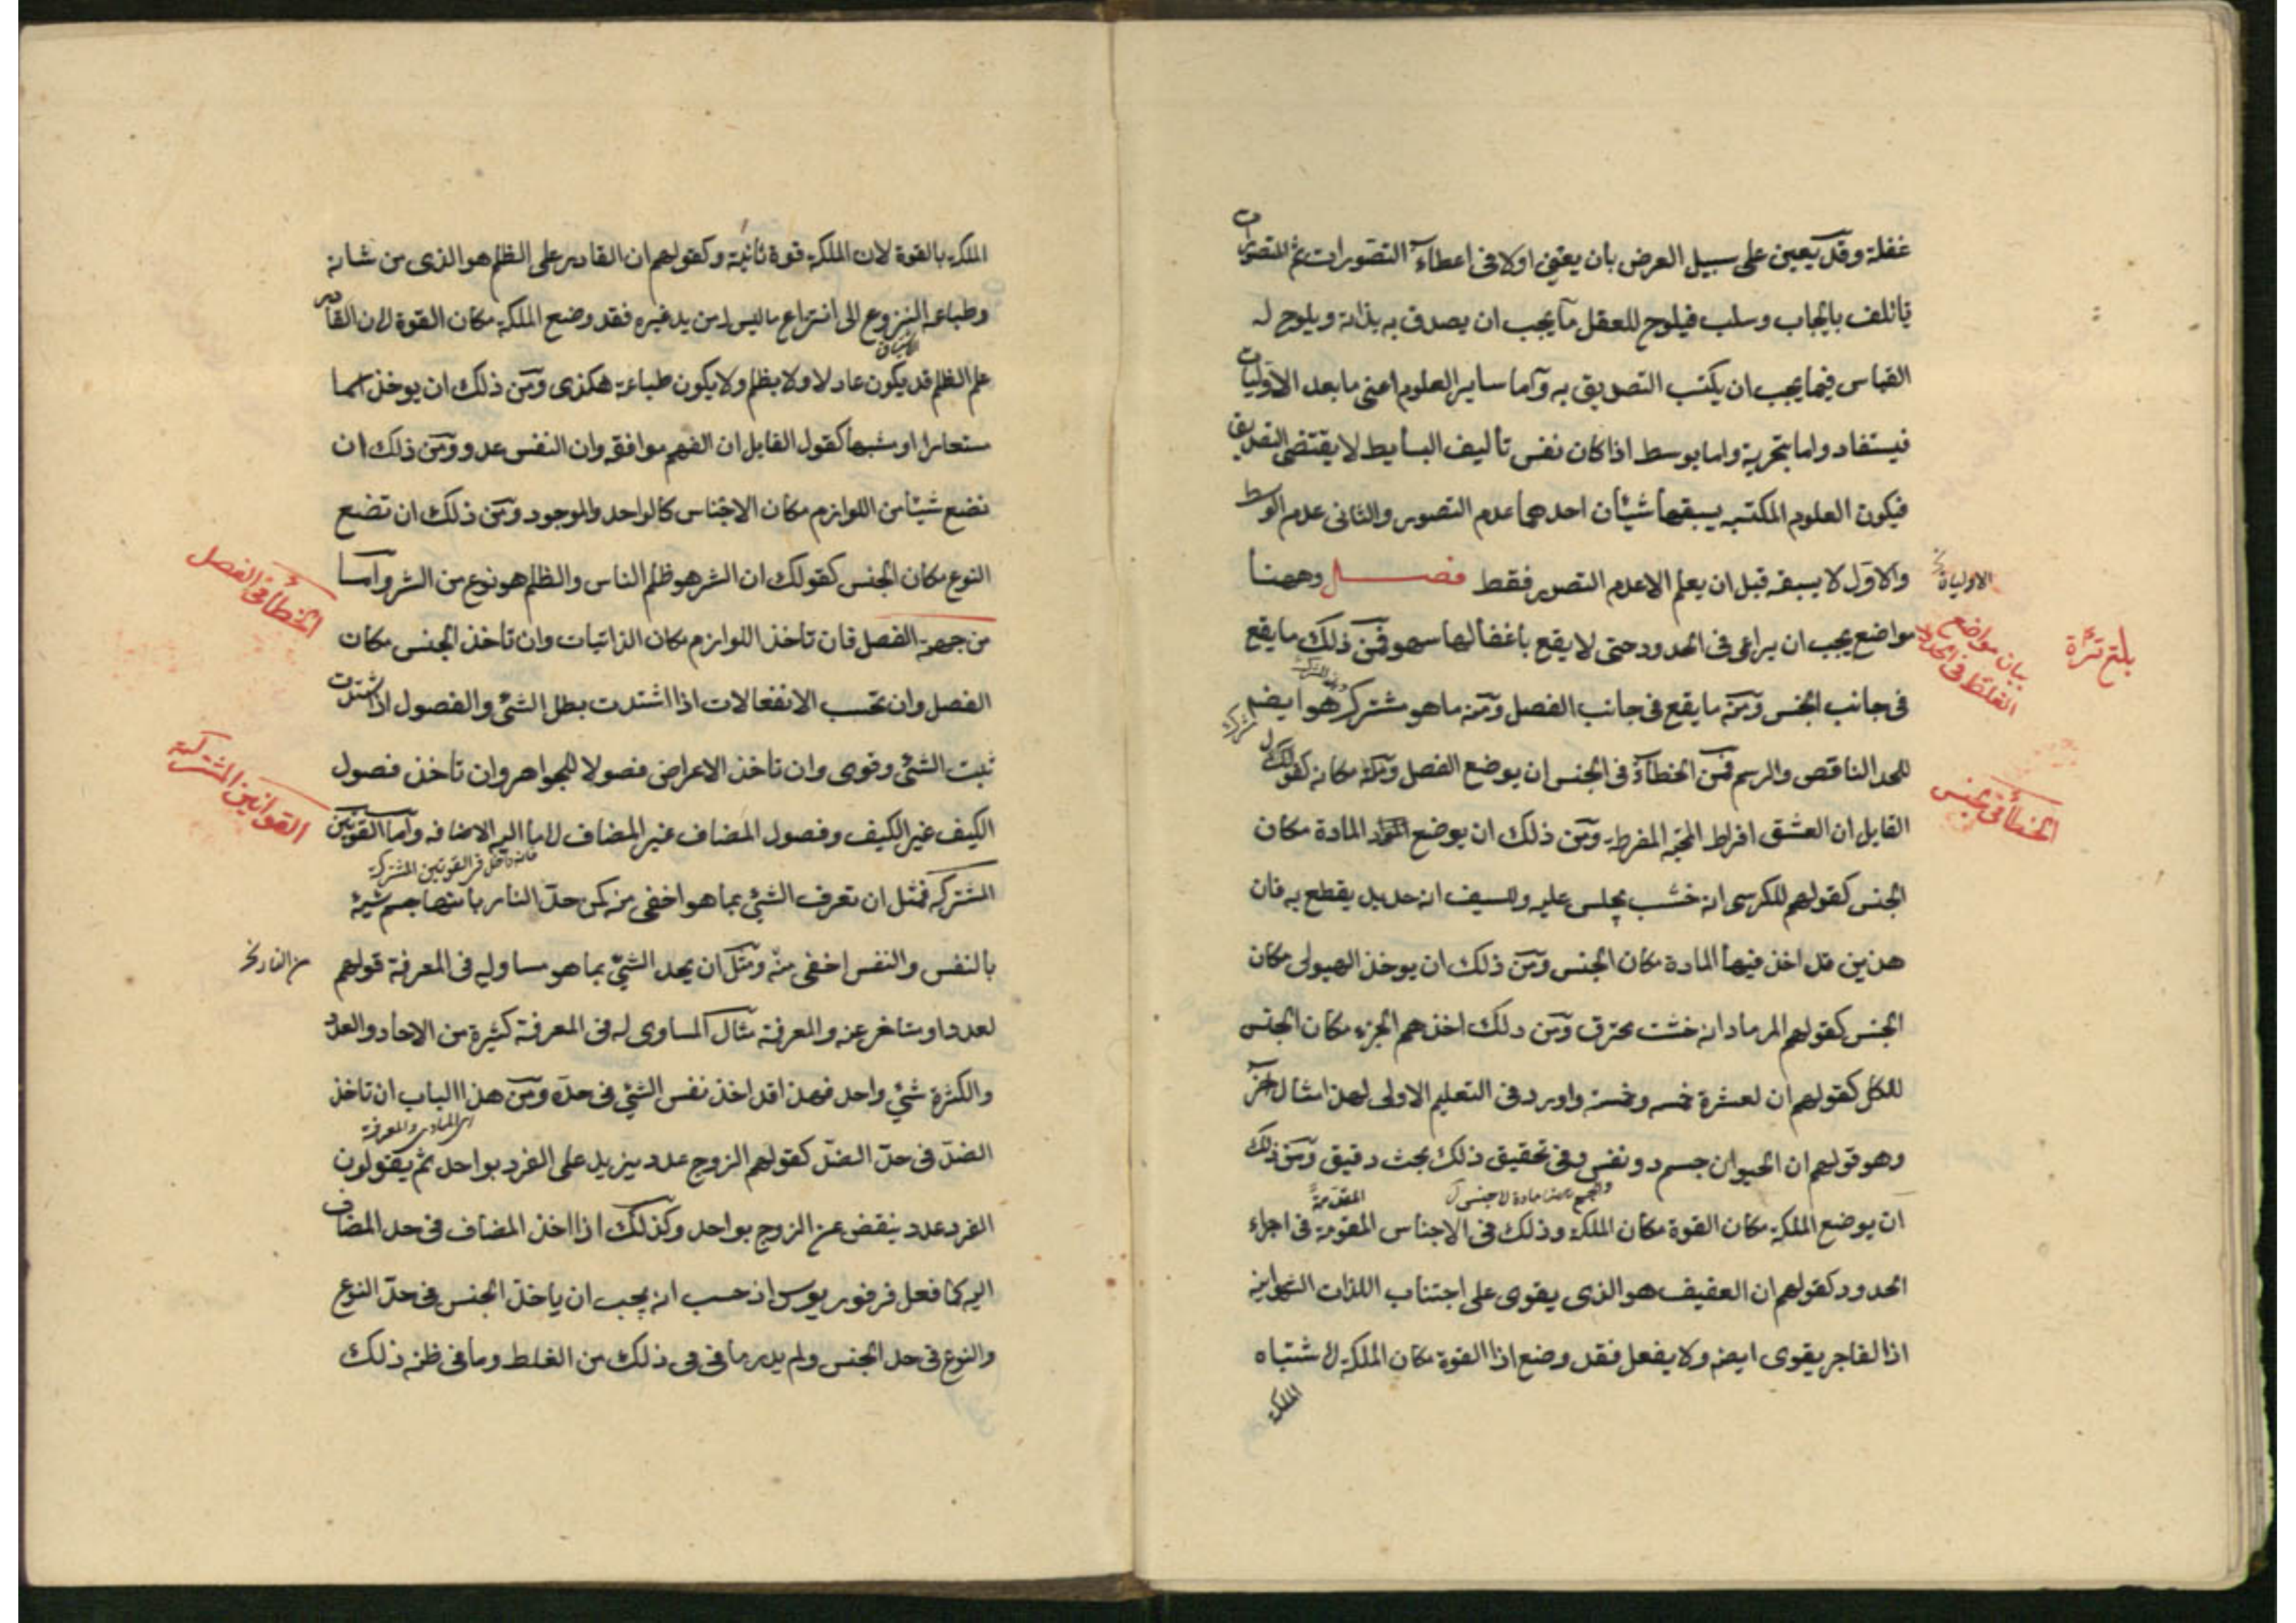 غفلة وقد يعين على سبيل العرض بان يعتنى اولا فى اعطاء التصورات ثم للتصورات
تاتلف بايجاب وسلب فيلوح للعقل ما يجب ان يصدق به بذاته ويلوح له
القياس فيما يجب ان يكتسب التصديق به وآما ساير العلوم اعنى ما بعد الاوليات
فيستفاد واما بتجربة واما بوسط اذا كان نفس تأليف البسايط لا يقتضى التصديق
فيكون العلوم المكتسبه يسبقها شيئان احدهما عدم التصور والثانى عدم الوسط
والاول لا يسبقه قبل ان يعلم الا عدم التصور فقط فصل وههنا
الاولياة
بلغ قرأة
بيان مواضع الغلط فى الحدود
مواضع يجب ان يراعى فى الحدود حتى لا يقع باغفالها سهو فمن ذلك ما يقع
فى جانب الجنس ومنه ما يقع فى جانب الفصل ومنه ما هو مشترك هو ايضا
للحد الناقص والرسم فمن الخطاء فى الجنس ان يوضع الفصل مكانه كقول
الخطأ فى الجنس
القايل ان العشق افراط المحبة المفرطة ومن ذلك ان يوضع المادة مكان
الجنس كقولهم للكرسى انه خشب يجلس عليه وللسيف انه حديد يقطع به فان
هذين قد اخذ فيهما المادة مكان الجنس ومن ذلك ان يوخذ الهيولى مكان
الجنس كقولهم الرماد انه خشب محترق ومن ذلك اخذهم الجزء مكان الجنس
للكل كقولهم ان لعشرة خمسه وخمسة واورد فى التعليم الاولى لهذا مثال آخر
وهو قولهم ان الحيوان جسم ذو نفس وفى تحقيق ذلك بحث دقيق ومن ذلك
المقدمة
ان يوضع الملكة مكان القوة مكان الملكة وذلك فى الاجناس المقومة فى اجزاء
الحدود كقولهم ان العفيف هو الذى يقوى على اجتناب اللذات الشهوانية
اذ الفاجر يقوى ايضا ولا يفعل فقد وضع اذا القوة مكان الملكة لاشتباه
الملكة
الملكة بالقوة لان الملكة قوة ثانية وكقولهم ان القادر على الظلم هو الذى من شانه
وطباعه النزوع الى انتزاع ما ليس له من يد غيره فقد وضع الملكة مكان القوة لان القادر
على الظلم قد يكون عادلا ولا يظلم ولا يكون طباعة هكذى ومن ذلك ان يوخذ اسما
مستعارا او مشبها كقول القايل ان الفهم موافقه وان النفس عدد ومن ذلك ان
تضع شيئا من اللوازم مكان الاجناس كالواحد والموجود ومن ذلك ان تضع
النوع مكان الجنس كقولك ان الشر هو ظلم الناس والظلم هو نوع من الشر واما
الخطأ فى الفصل
من جهة الفصل فان تاخذ اللوازم مكان الذاتيات وان تاخذ الجنس مكان
الفصل وان تحسب الانفعالات اذا اشتدت بطل الشئ والفصول اذا اشتدت
ثبت الشئ وقوى وان تاخذ الاعراض فصولا للجواهر وان تاخذ فصول
القوانين المشتركة
الكيف غير الكيف وفصول المضاف غير المضاف لا ما اليه الاضافه وآما القوانين
المشتركه فمثل ان تعرف الشئ بما هو اخفى منه كمن حد النار بانها جسم شبيه
بالنفس والنفس اخفى منه ومثل ان يحد الشئ بما هو مساو له فى المعرفة قولهم
لعدد او متاخر عنه والمعرفة مثال المساوى له فى المعرفة كثيرة من الاحاد والعدد
والكثرة شئ واحد فهذا قد اخذ نفس الشئ فى حده ومن هذا الباب ان تاخذ
الضد فى حد الضد كقولهم الزوج عدد يزيد على الفرد بواحد ثم يقولون
الفرد عدد ينقض عن الزوج بواحد وكذلك اذا اخذ المضاف فى حد المضاف
اليه كما فعل فرفوريوس اذ حسب انه يجب ان ياخذ الجنس فى حد النوع
والنوع فى حد الجنس ولم يدر ما فى فى ذلك من الغلط وما فى ظنه ذلك